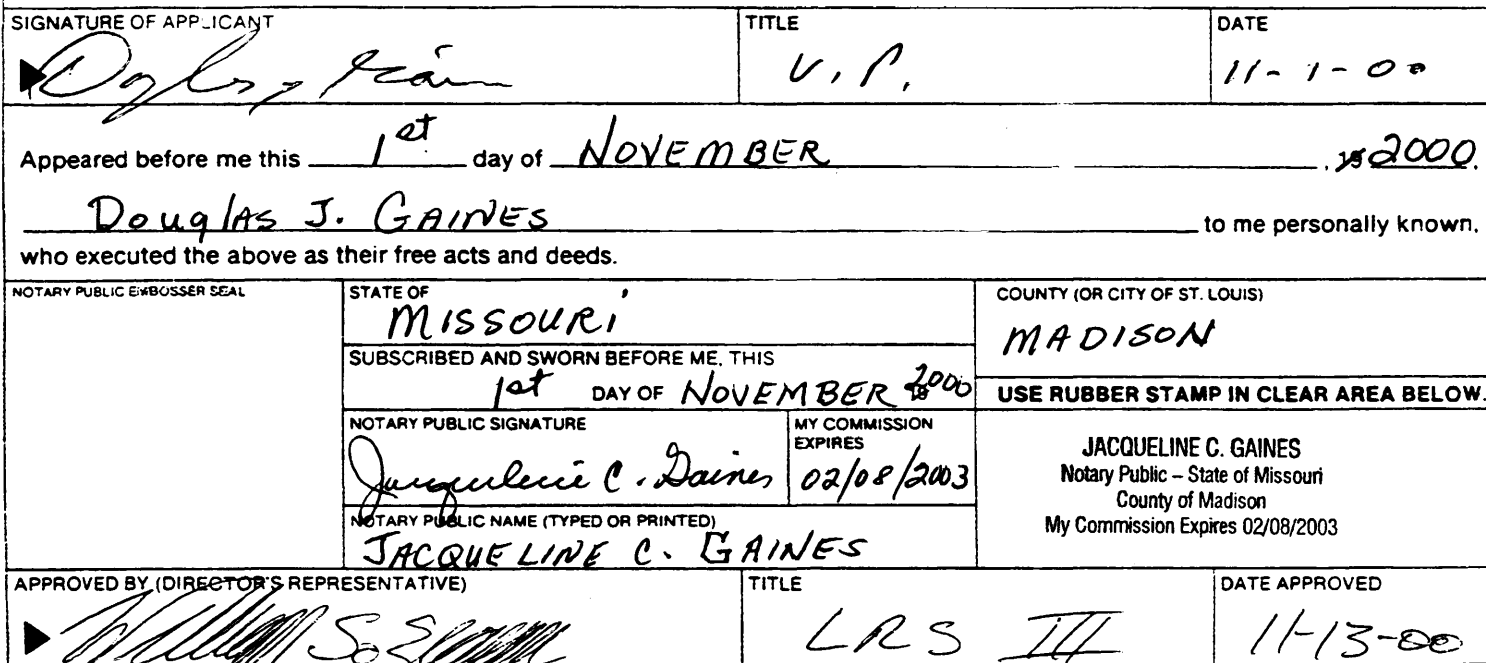 SIGNATURE OF APPLICANT
TITLE
DATE
V.P.
11-1-00
Appeared before me this 1st day of NOVEMBER , 2000,
Douglas J. GAINES to me personally known,
who executed the above as their free acts and deeds.
NOTARY PUBLIC EMBOSSER SEAL
STATE OF
MISSOURI
COUNTY (OR CITY OF ST. LOUIS)
MADISON
SUBSCRIBED AND SWORN BEFORE ME, THIS
1st DAY OF NOVEMBER 2000
USE RUBBER STAMP IN CLEAR AREA BELOW.
NOTARY PUBLIC SIGNATURE
Jacqueline C. Gaines
MY COMMISSION
EXPIRES
02/08/2003
JACQUELINE C. GAINES
Notary Public – State of Missouri
County of Madison
My Commission Expires 02/08/2003
NOTARY PUBLIC NAME (TYPED OR PRINTED)
JACQUELINE C. GAINES
APPROVED BY (DIRECTOR'S REPRESENTATIVE)
TITLE
LRS III
DATE APPROVED
11-13-00